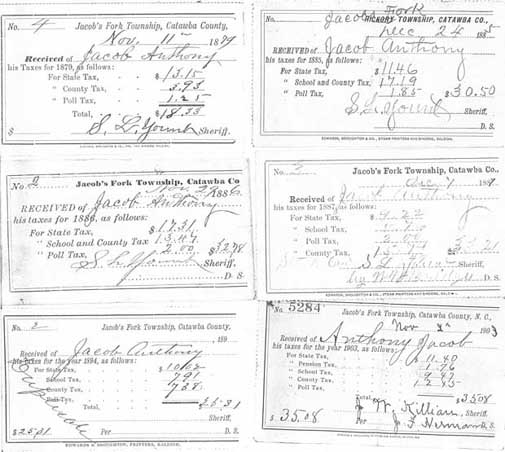 No. 4 Jacob's Fork Township, Catawba County,
Nov. 11 1879
Received of Jacob Anthony
his Taxes for 1879, as follows:
For State Tax, $13.15
" County Tax, 3.93
" Poll Tax, 1.25
Total, $18.33
$ S. L. Yount Sheriff.
Jacobs Fork
HICKORY TOWNSHIP, CATAWBA CO.,
No. Dec 24 1885
RECEIVED of Jacob Anthony
his taxes for 1885, as follows:
For State Tax, $11.46
" School and County Tax, 17.19
" Poll Tax, 1.85 $30.50
S. L. Yount Sheriff
D. S.
EDWARDS, BROUGHTON & CO., STEAM PRINTERS AND BINDERS, RALEIGH.
No. 2 Jacob's Fork Township, Catawba Co.
1886
RECEIVED of Jacob Anthony
his taxes for 1886, as follows:
For State Tax, $17.31
" School and County Tax 13.47
" Poll Tax, 2.00 $32.78
S. L. Yount Sheriff.
D S.
EDWARDS, BROUGHTON & CO., STEAM PRINTERS AND BINDERS, RALEIGH.
No. 2 Jacob's Fork Township, Catawba Co.,
188
RECEIVED of Jacob Anthony
his taxes for 1887, as follows:
For State Tax,
" School Tax,
" Poll Tax,
" County Tax,
S L Yount Sheriff,
D. S.
EDWARDS, BROUGHTON & CO., STEAM PRINTERS AND BINDERS, RALEIGH.
No. 2 Jacob's Fork Township, Catawba County,
189
Received of Jacob Anthony
his taxes for the year 1894, as follows:
For State Tax,
School Tax, 791
County Tax, 738
Poll Tax,
Total,
Sheriff.
$25.31 Per D. S.
EDWARDS & BROUGHTON, PRINTERS, RALEIGH.
No. 5284
Jacob's Fork Township, Catawba County, N. C.,
Nov 1903
Received of Anthony Jacob
his taxes for the year 1903, as follows:
For State Tax, 11.40
" Pension Tax,
" School Tax,
" County Tax,
Total, $3508
J W. Killian, Sheriff.
$35.08 Per J F Herman D. S.